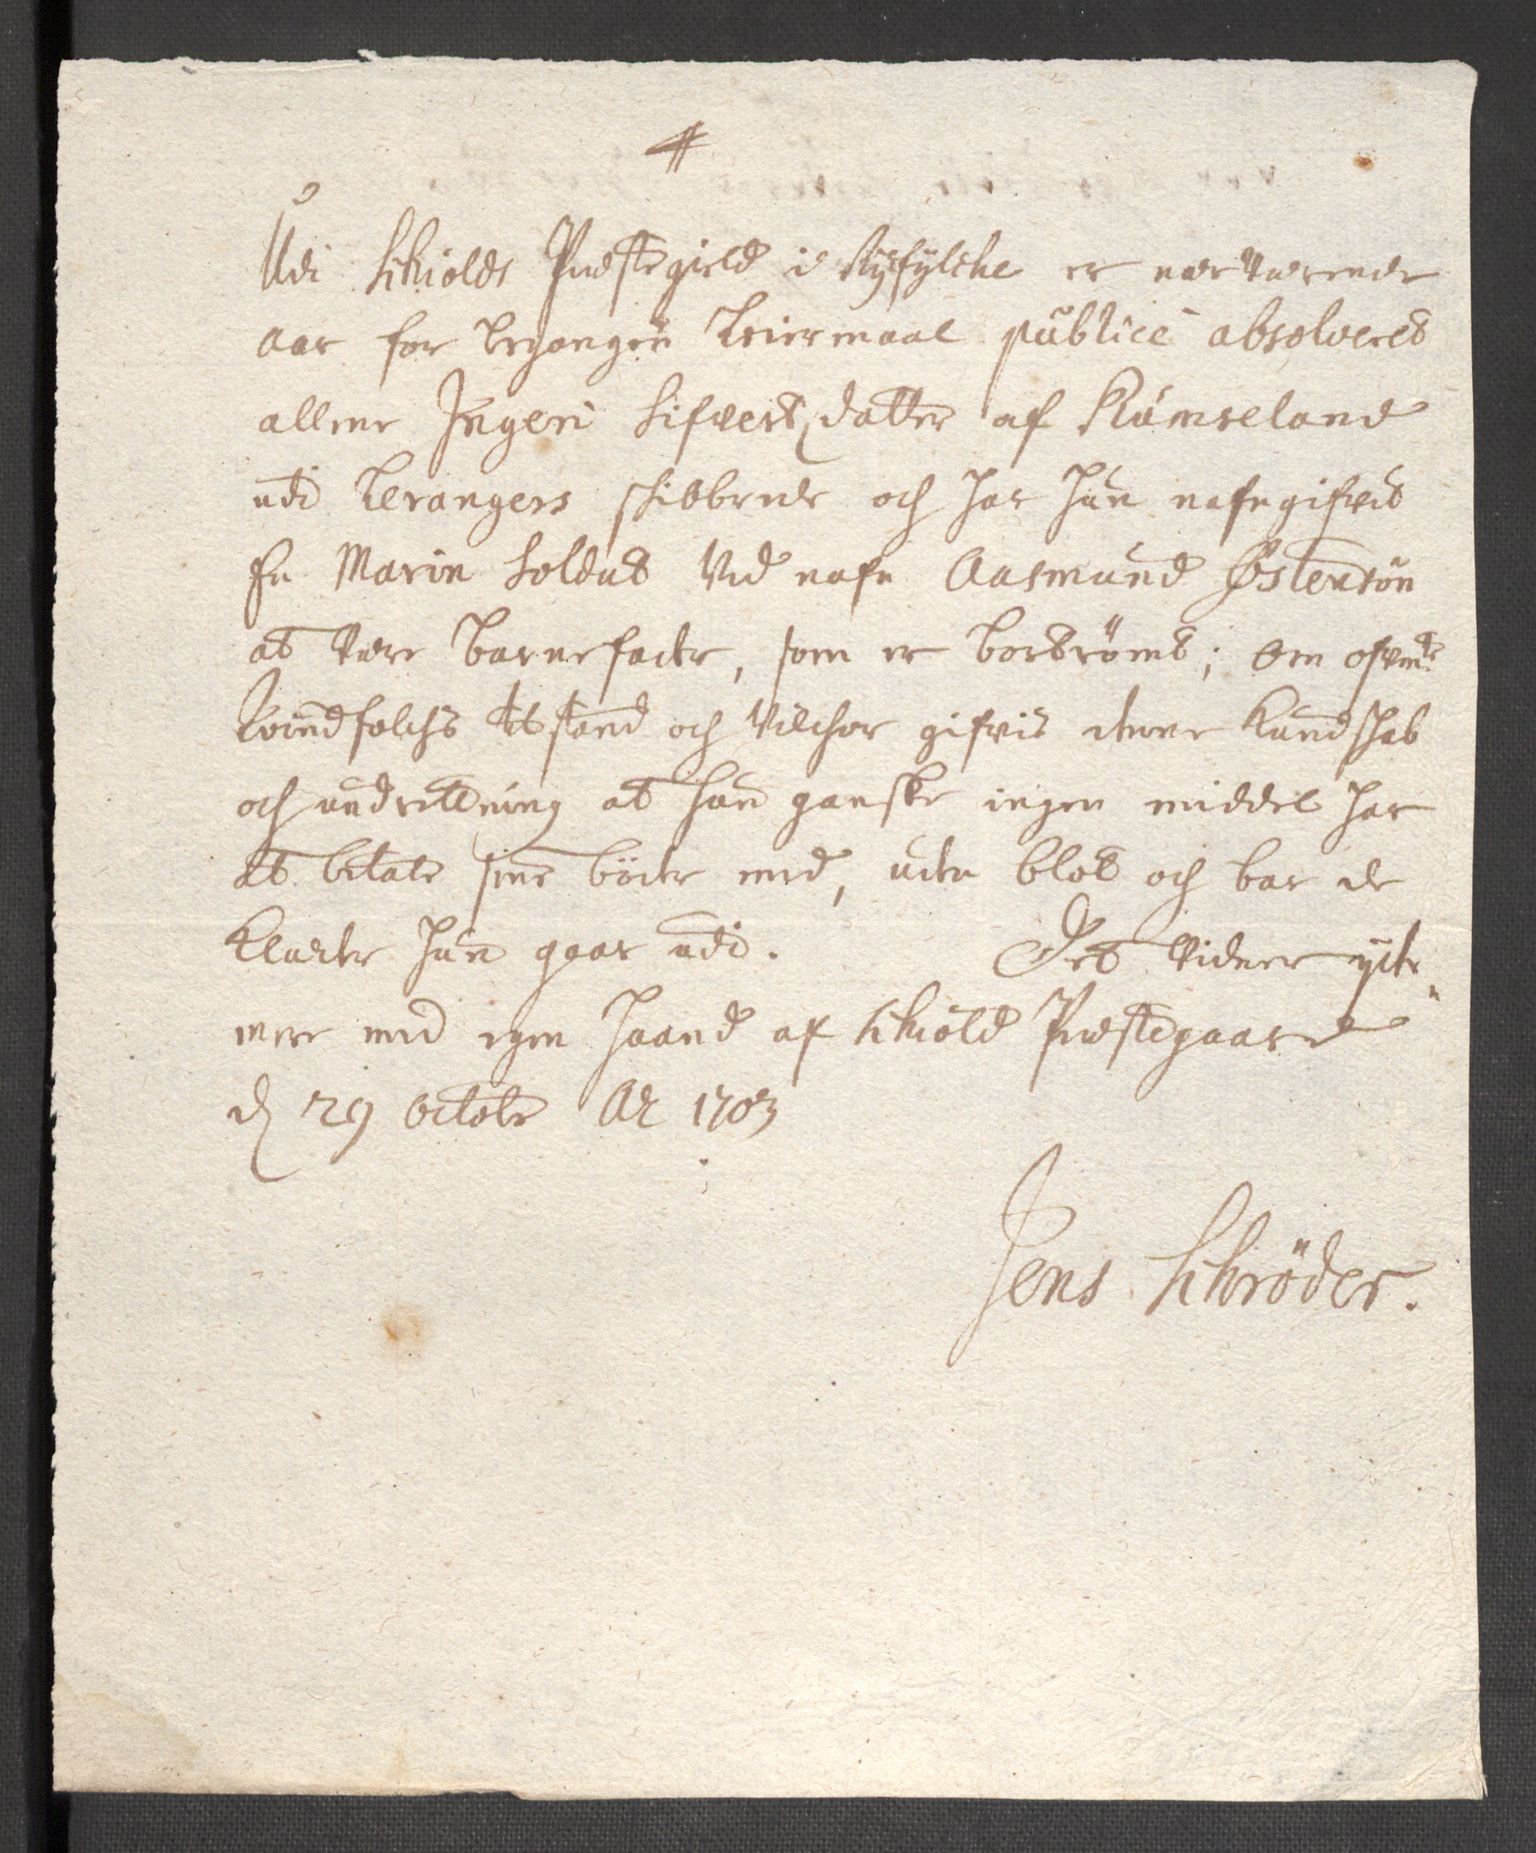 Udi Schiolds Præstegield i Ryfylche er nærværende
aar for begangen Leiermaal publicè absolveret
allene Ingeri Sifverts datter af Rumseland
udi Lerangers schibbrede och har hun nafngifvet
En Marin Soldat ved nafn Aasmund Østensøn
at være barnefader, som er bortrømt; Om ofvent:
Qvindfolchs tilstand och Vilchor gifvis denne Kundschab
och underretning at hun ganske ingen middel har
at betale sine böder med, uden blot och bar de
Klæder hun gaar udi. Det vidner yder„
mere med egen Haand af Schiold Præstegaard
d 29 octobr Ao 1703
Jens Schröder.